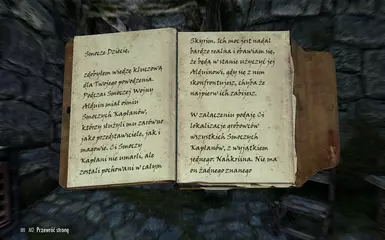 Smocze Dziecię,
zdobyłem wiedzę kluczową
dla Twojego powodzenia.
Podczas Smoczej Wojny
Alduin miał ośmiu
Smoczych Kapłanów,
którzy służyli mu zarówno
jako przedstawiciele, jak i
magowie. Ci Smoczy
Kapłani nie umarli, ale
zostali pochowani w całym
Skyrim. Ich moc jest nadal
bardzo realna i obawiam się,
że będą w stanie użyczyć jej
Alduinowi, gdy się z nim
skonfrontujesz, chyba że
najpierw ich zabijesz.
W załączeniu podaję Ci
lokalizację grobowców
wszystkich Smoczych
Kapłanów, z wyjątkiem
jednego: Nahkriina. Nie ma
on żadnego znanego
Przewróć stronę